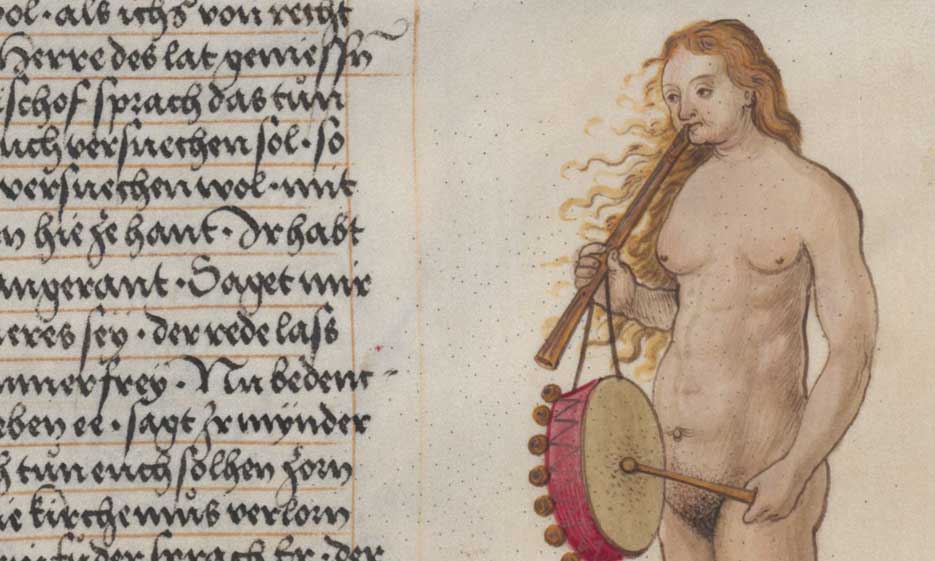 wol · als ichs von recht
Herre des lat geniessen
schof sprach das tuͦn
uch versuechen sol · so
versuechen wol · mit
n hie ze hant · Ir habt
angerant · Saget mir
eres sey · der rede lass
mmer frey · Nu bedenc-
eben ee · sagt Ir mynder
h tuͦn euch solhen zorn
ie kirchen mus verlorn
sprach Er · der